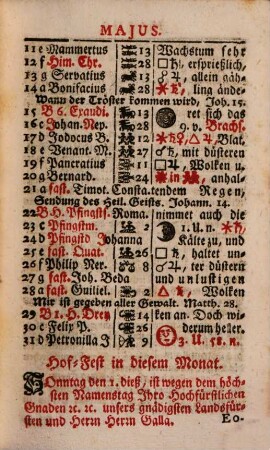 MAJUS.
11 e Mammertus 13 Wachstum sehr
12 f Him. Chr. 28 □♄, ersprießlich,
13 g Servatius 13 ☍♃, allein gäh-
14 a Bonifacius 28 ling ände-
Wann der Tröster kommen wird, Joh. 15.
15 B 6. Exaudi. 13 ret sich das
16 c Johan. Nep. 9. v. Brachs.
17 d Jodocus B. Blat.
18 e Venant. M. mit düsteren
19 f Pancratius 11 Wolken u.
20 g Bernard. 24 in anhal-
21 a fast. Timot. Consta. tendem Regen,
Sendung des Heil. Geists. Johann. 14.
22 B H. Pfingstf. Roma. nimmet auch die
23 c Pfingstm. 1. u. n.
24 d Pfingstd Johanna Kälte zu, und
25 e fast. Quat. 26 □♄, haltet un-
26 f Philip Ner. 8 ☍♂, ter düstern
27 g fast. Joh. Beda und unlustigen
28 a fast. Guiliel. 2 Wolken
Mir ist gegeben aller Gewalt. Matth. 28.
29 B 1. H. Drey 14 ken an. Doch wi-
30 c Felix P. derum heller.
31 d Petronilla J 9 3. u. 58. n.
Hof-Fest in diesem Monat.
Sonntag den 1. dieß, ist wegen dem höch-
sten Namenstag Ihro Hochfürstlichen
Gnaden ꝛc. ꝛc. unsers gnädigsten Landsfür-
sten und Herrn Herrn Galla.
Eo-